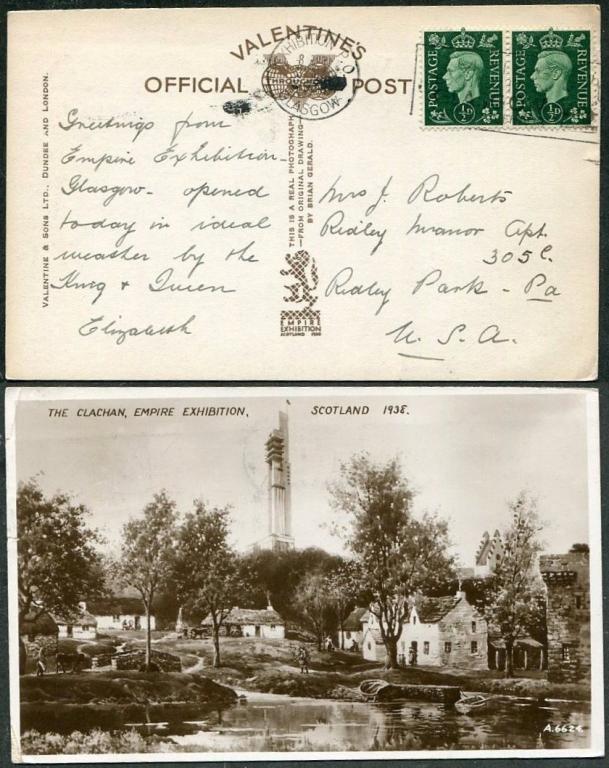 VALENTINE'S
OFFICIAL POST
EXHIBITION P.O.
GLASGOW
POSTAGE REVENUE
½D
POSTAGE REVENUE
½D
VALENTINE & SONS LTD., DUNDEE AND LONDON.
Greetings from
Empire Exhibition -
Glasgow - opened
today in ideal
weather by the
King & Queen
Elizabeth
THIS IS A REAL PHOTOGRAPH
—FROM ORIGINAL DRAWING—
BY BRIAN GERALD.
EMPIRE
EXHIBITION
SCOTLAND 1938
Mrs J. Roberts
Ridley Manor Apt.
305 C.
Ridley Park - Pa
U.S.A.
THE CLACHAN, EMPIRE EXHIBITION, SCOTLAND 1938.